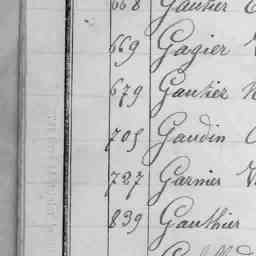 668 Gautier
669 Gagier
679 Gautier
705 Gaudin
727 Garnier
899 Gauthier